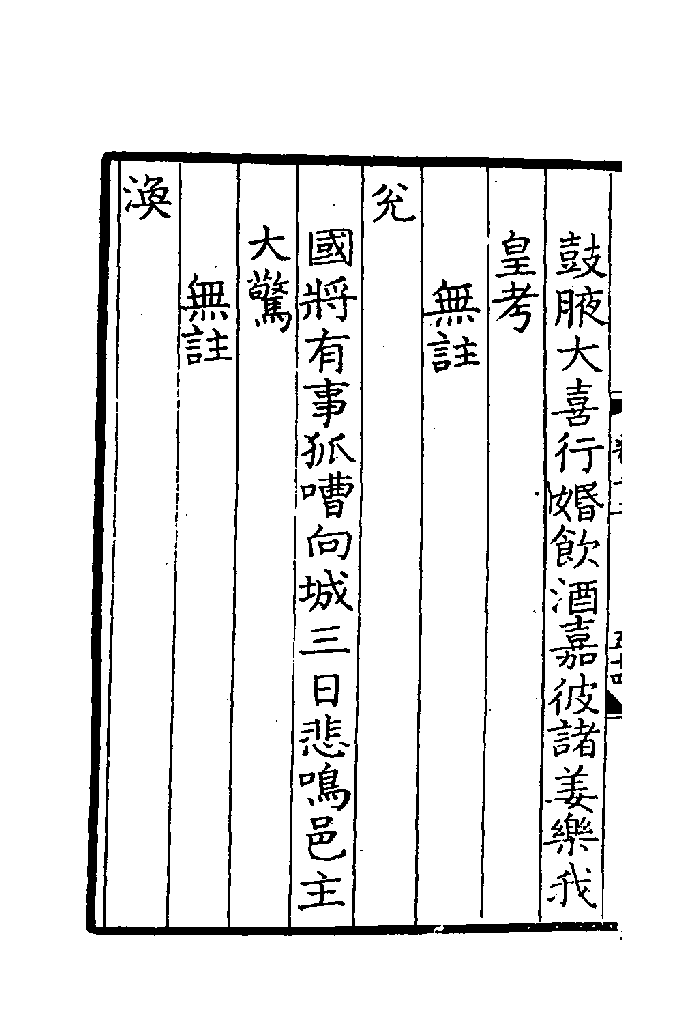 鼓腋大喜行婚飲酒嘉彼諸姜樂我
皇考
無註
兊
國將有事狐嘈向城三日悲鳴邑主
大驚
無註
渙